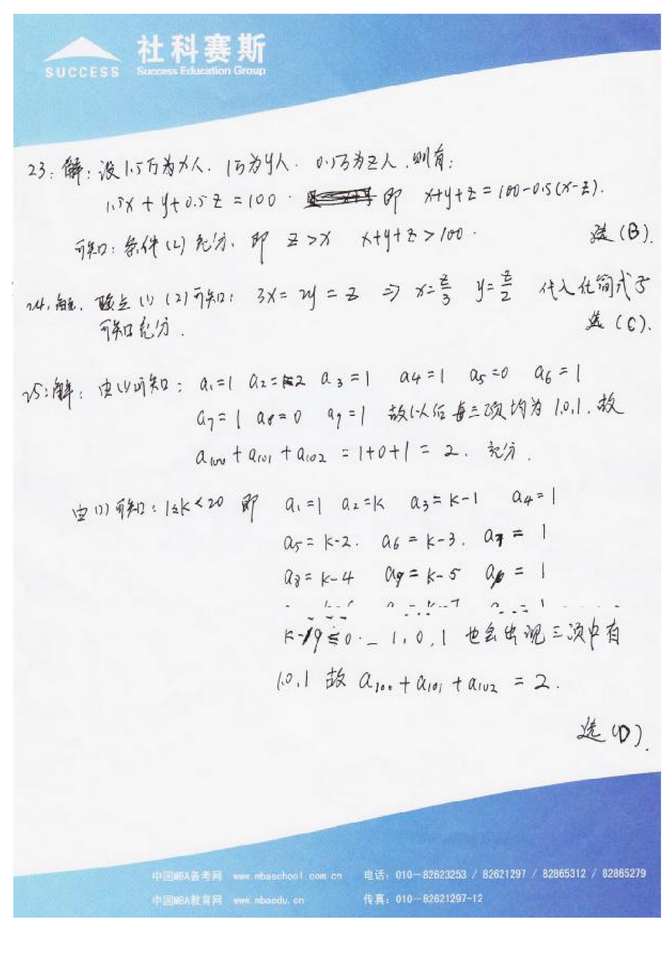 社科赛斯
SUCCESS Success Education Group
23:解:设1.5万为x人. 1万为y人. 0.5万为z人,则有:
1.5x+y+0.5z=100. 即 x+y+z=100-0.5(x-z).
可知:条件(2)充分. 即 z>x x+y+z>100. 选(B).
24.解. 联立(1)(2)可知: 3x=2y=z ⇒ x=z/3 y=z/2 代入化简式子
可知充分. 选(C).
25:解: 由(1)可知: a₁=1 a₂=2 a₃=1 a₄=1 a₅=0 a₆=1
a₇=1 a₈=0 a₉=1 故以后每三项均为1.0.1.故
a₁₀₀+a₁₀₁+a₁₀₂=1+0+1=2. 充分.
由(2)可知:1≤k<20 即 a₁=1 a₂=k a₃=k-1 a₄=1
a₅=k-2. a₆=k-3. a₇=1
a₈=k-4 a₉=k-5 =1
k-19≤0. 1,0,1 也会出现三项中有
1.0.1 故 a₁₀₀+a₁₀₁+a₁₀₂=2.
选(D).
中国MBA备考网 www.mbaschool.com.cn 电话:010-82623253 / 82621297 / 82865312 / 82865279
中国MBA教育网 www.mbaedu.cn 传真:010-82621297-12